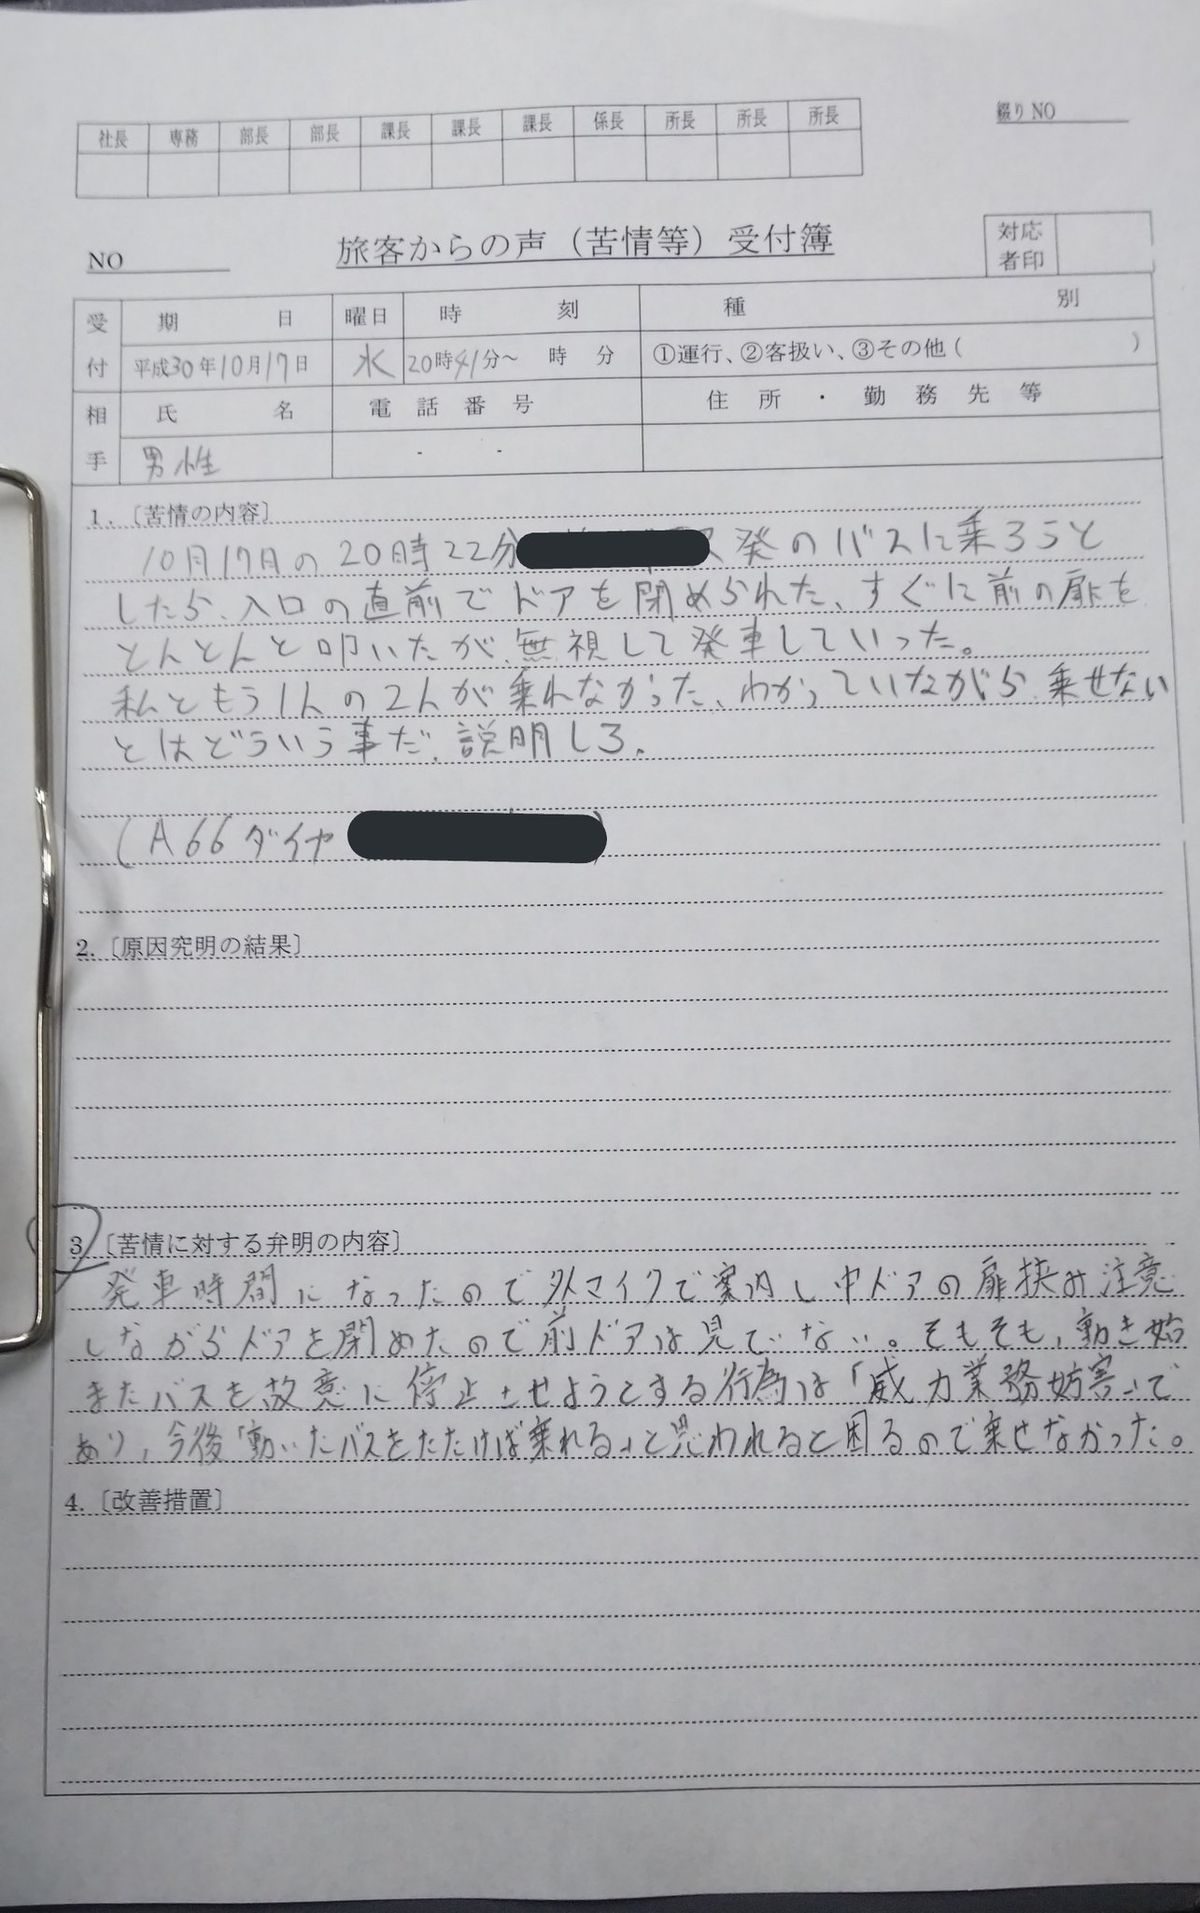 綴りNO
社長 専務 部長 部長 課長 課長 課長 係長 所長 所長 所長
NO
旅客からの声（苦情等）受付簿
対応者印
受付 期日 曜日 時刻 種別
平成30年10月17日 水 20時41分～ 時 分 ①運行、②客扱い、③その他（ ）
相手 氏名 電話番号 住所・勤務先等
男性 - -
1.〔苦情の内容〕
10月17日の20時22分 発のバスに乗ろうと
したら、入口の直前でドアを閉められた、すぐに前の扉を
とんとんと叩いたが、無視して発車していった。
私ともう1人の2人が乗れなかった、わかっていながら乗せない
とはどういう事だ、説明しろ、
(A66ダイヤ )
2.〔原因究明の結果〕
3〔苦情に対する弁明の内容〕
発車時間になったので外マイクで案内し中ドアの扉挟み注意
しながらドアを閉めたので前ドアは見ていない。そもそも、動き始
めたバスを故意に停止させようとする行為は「威力業務妨害」で
あり、今後「動いたバスをたたけば乗れる」と思われると困るので乗せなかった。
4.〔改善措置〕